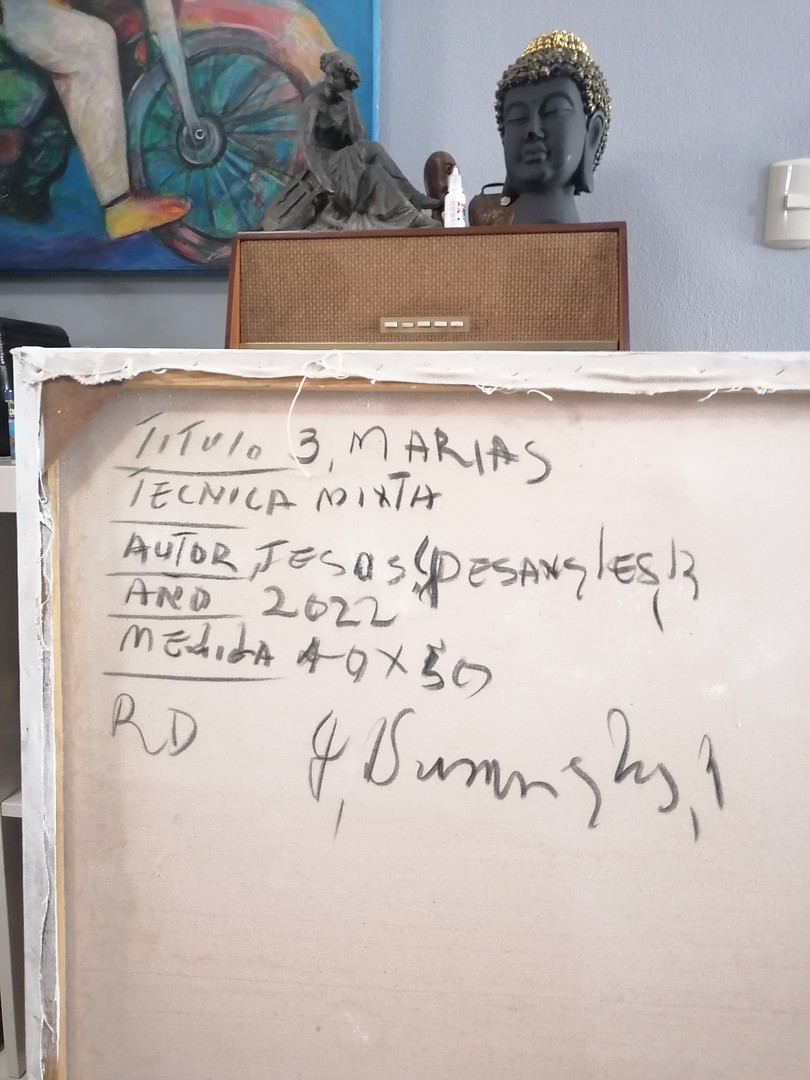 TITULO 3, MARIAS
TECNICA MIXTA
AUTOR, JESUS, DESANGLES,
ANO 2022
MEDIDA 40 X 50
RD